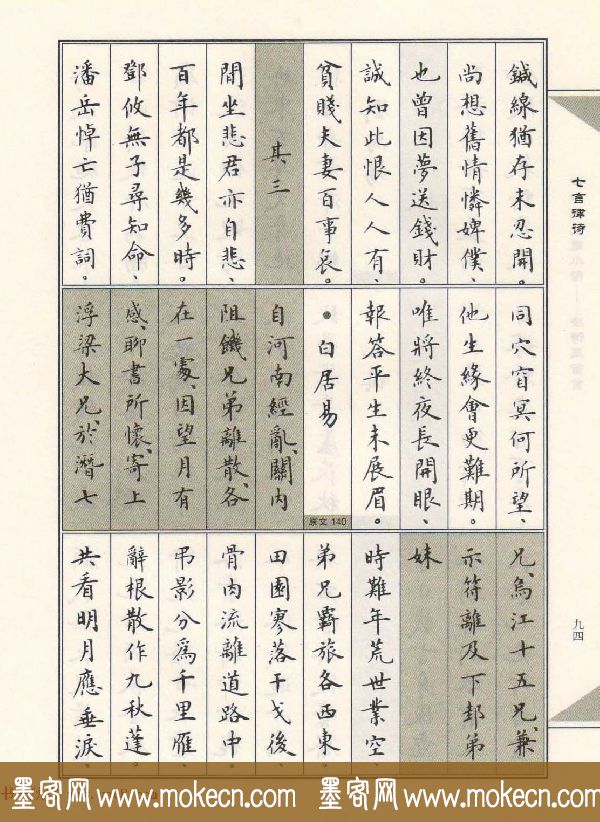 鍼線猶存未忍開。
尚想舊情憐婢僕、
也曾因夢送錢財。
誠知此恨人人有、
貧賤夫妻百事哀。
其三
閒坐悲君亦自悲、
百年都是幾多時。
鄧攸無子尋知命、
潘岳悼亡猶費詞。
同穴窅冥何所望、
他生緣會更難期。
唯將終夜長開眼、
報答平生未展眉。
●白居易
原文 140
自河南經亂、關內
阻饑、兄弟離散、各
在一處、因望月有
感、聊書所懷、寄上
浮梁大兄、於潛七
兄、烏江十五兄、兼
示符離及下邽弟
妹
時難年荒世業空
弟兄羈旅各西東。
田園寥落干戈後、
骨肉流離道路中。
弔影分爲千里雁、
辭根散作九秋蓬。
共看明月應垂淚、
七言律诗
九四
墨客网 www.mokecn.com 墨客网 www.mokecn.com